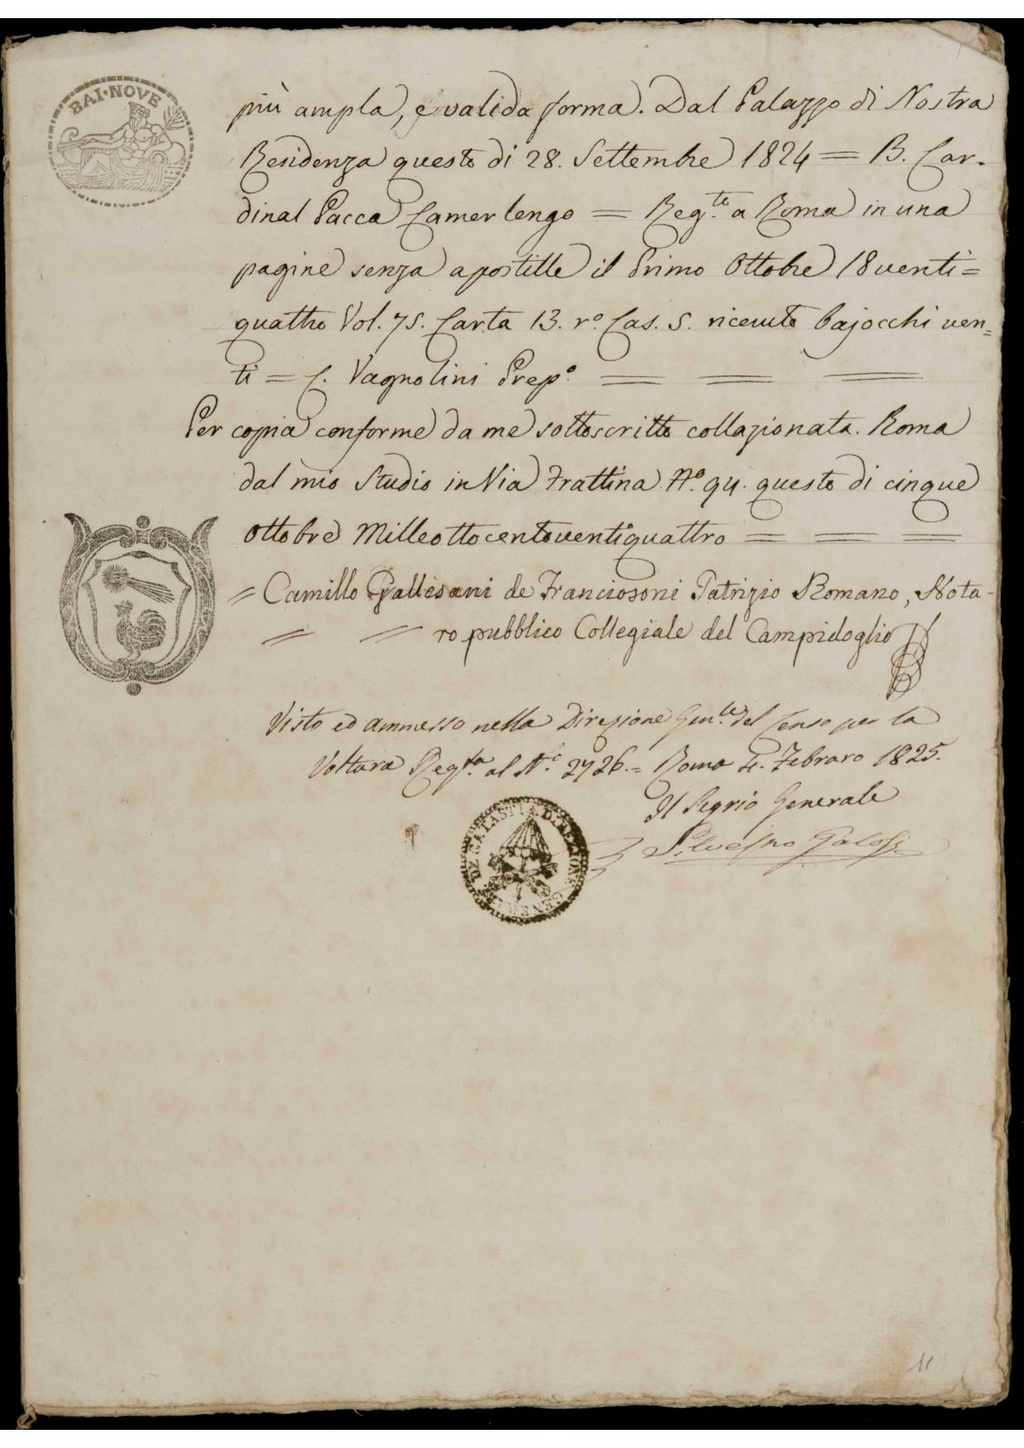 BAI·NOVE
più ampla, e valida forma. Dal Palazzo di Nostra
Residenza questo dì 28. Settembre 1824 = B. Car-
dinal Pacca Camerlengo = Reg.te a Roma in una
pagine senza apostille il Primo Ottobre 18venti=
quattro Vol. 75. Carta 13. r.o Cas. 5. ricevuto bajocchi ven-
ti = C. Vagnolini Prep.o = = =
Per copia conforme da me sottoscritto collazionata. Roma
dal mio Studio in Via Frattina N.o 94. questo dì cinque
Ottobre Milleottocentoventiquattro = = =
= Camillo Gallesani de Franciosoni Patrizio Romano, Nota-
= = ro pubblico Collegiale del Campidoglio
Visto ed ammesso nella Direzione Gen.le del Censo per la
Voltura Reg.ta al N.o 2726. = Roma 4. Febraro 1825.
Il Segrio Generale
DIREZIONE GENERALE DE CATASTI
11